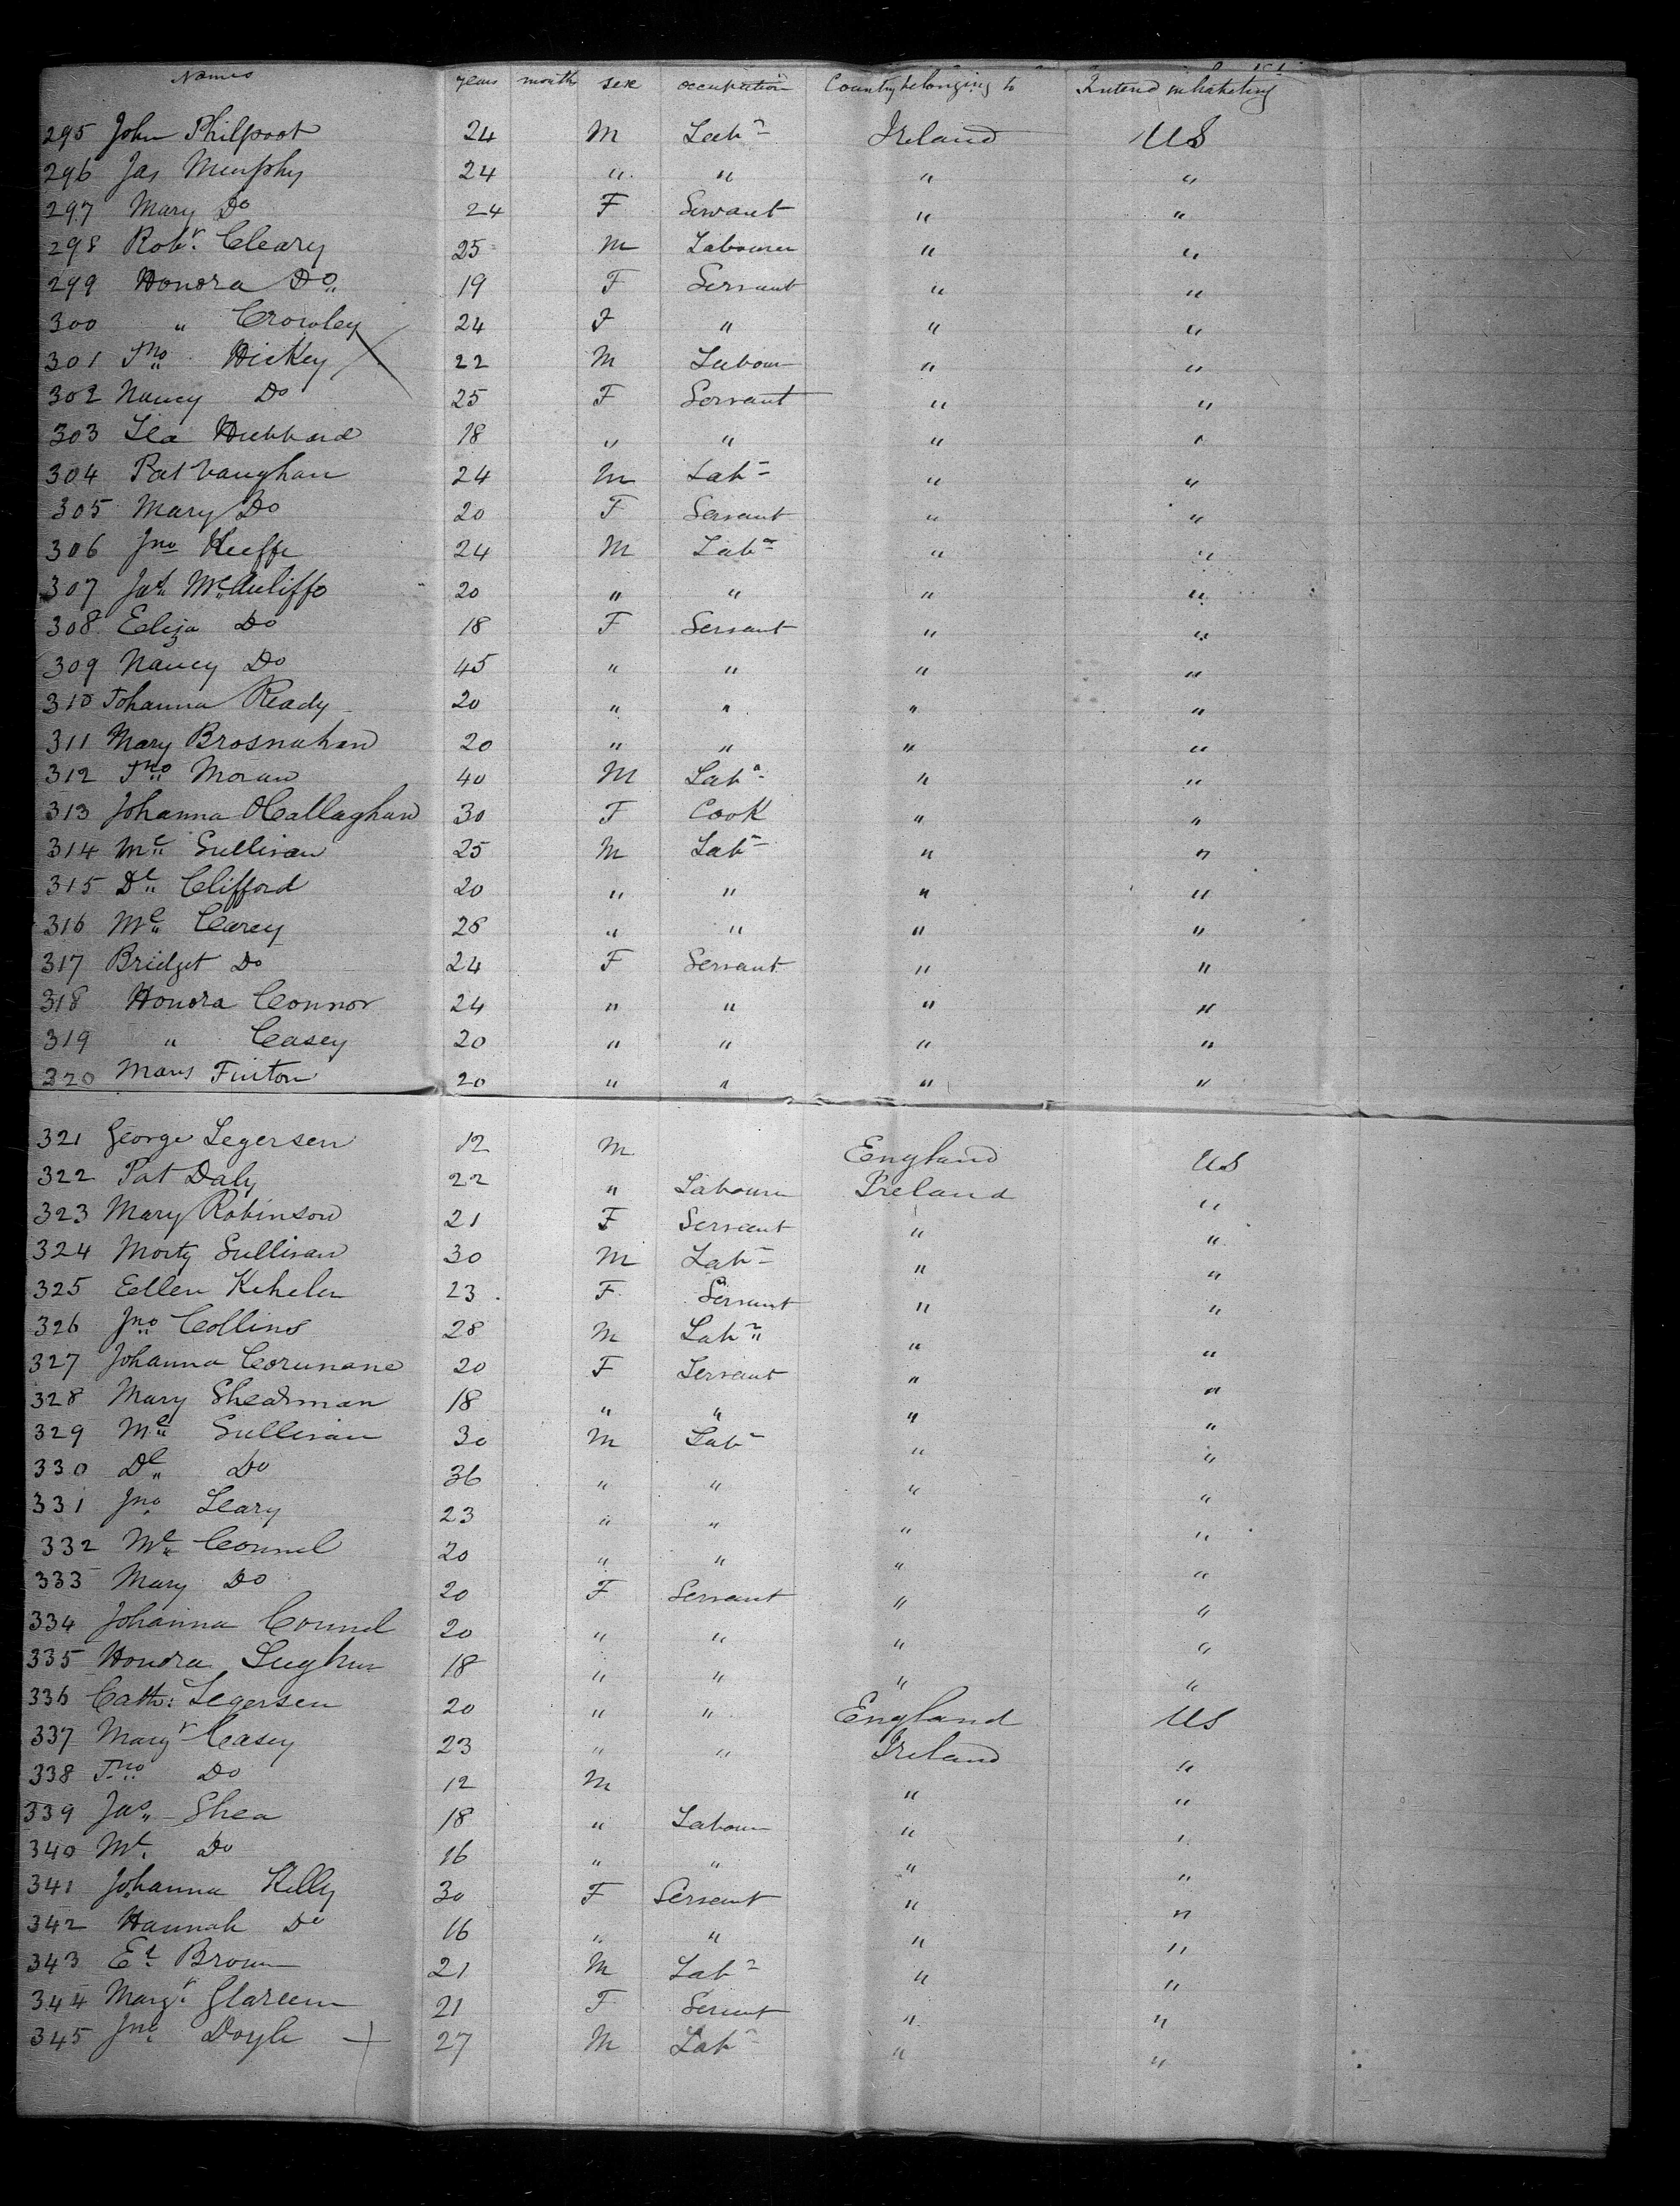 Names years month sex occupation Country belonging to Intend inhabiting
295 John Philpoot 24 M Labr Ireland US
296 Jas Murphy 24 " " " "
297 Mary Do 24 F Servant " "
298 Robt. Cleary 25 M Labourer " "
299 Honora Do 19 F Servant " "
300 " Crowley 24 F " " "
301 Jno Hickey 22 M Labour " "
302 Nancy Do 25 F Servant " "
303 Hubbard 18 " " " "
304 Pat Vaughan 24 M Labr " "
305 Mary Do 20 F Servant " "
306 Jno Keeffe 24 M Labr " "
307 McAuliffe 20 " " " "
308 Eliza Do 18 F Servant " "
309 Nancy Do 45 " " " "
310 Johanna Ready 20 " " " "
311 Mary Brosnahan 20 " " " "
312 Jno Moran 40 M Labr " "
313 Johanna OCallaghan 30 F Cook " "
314 Ml Sullivan 25 M Labr " "
315 Dl Clifford 20 " " " "
316 Ml Carey 28 " " " "
317 Bridget Do 24 F Servant " "
318 Honora Connor 24 " " " "
319 " Casey 20 " " " "
320 Finton 20 " " " "
321 George Legersen 12 M England US
322 Pat Daly 22 " Labourer Ireland "
323 Mary Robinson 21 F Servant " "
324 Morty Sullivan 30 M Labr " "
325 Ellen 23 F Servant " "
326 Jno Collins 28 M Labr " "
327 Johanna Corunane 20 F Servant " "
328 Mary Shearman 18 " " " "
329 Ml Sullivan 30 M Labr " "
330 Dl Do 36 " " " "
331 Jno Leary 23 " " " "
332 Ml Connel 20 " " " "
333 Mary Do 20 F Servant " "
334 Johanna Connel 20 " " " "
335 Honora 18 " " " "
336 Cath: Legersen 20 " " England US
337 Margr Casey 23 " " Ireland "
338 Jno Do 12 M " "
339 Jas Shea 18 " Labour " "
340 Mt. Do 16 " " " "
341 Johanna Kelly 30 F Servant " "
342 Hannah Do 16 " " " "
343 Ed Brown 21 M Labr " "
344 Margr 21 F Servant " "
345 Jno Doyle 27 M Labr " "